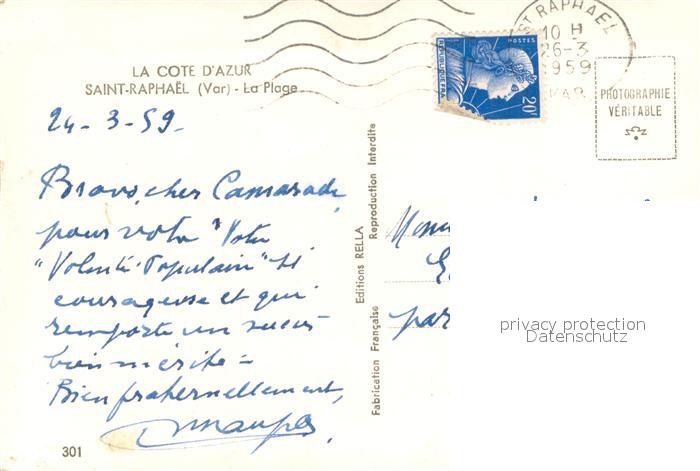 LA COTE D'AZUR
SAINT-RAPHAËL (Var) - La Plage
24-3-59.
Bravo, cher Camarade,
pour votre "Votre
"Volonté Populaire" si
courageuse et qui
remporte un succès
bien mérité =
Bien fraternellement,
301
Editions RELLA
Reproduction Interdite
Fabrication Française
ST RAPHAEL
10 H
26-3
1959
VAR
POSTES
REPUBLIQUE FRA
20F
PHOTOGRAPHIE
VÉRITABLE
par
privacy protection
Datenschutz